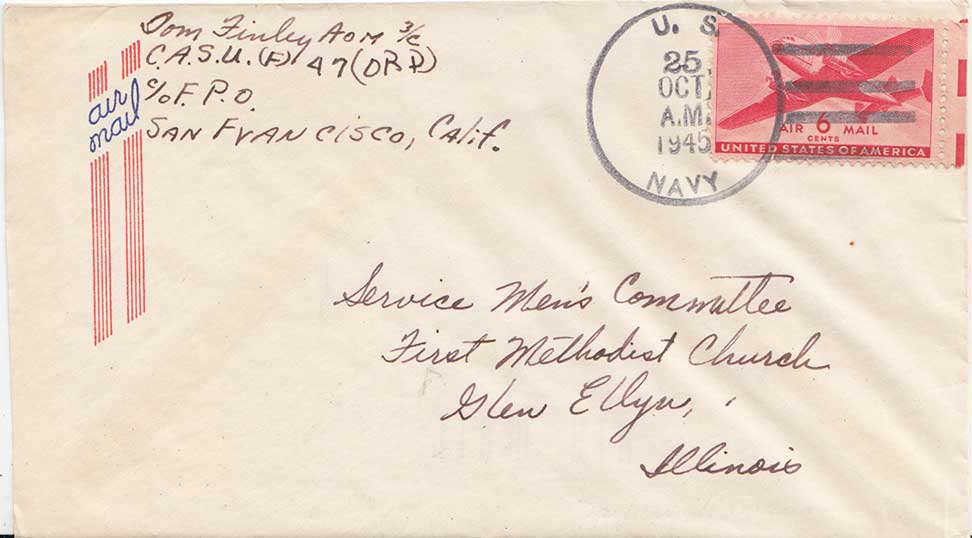 Dom Finley AOM 3/c
C.A.S.U. (F) 47 (DRP)
c/o F. P. O.
San Francisco, Calif.
air
mail
U. S.
25
OCT
A.M.
1945
NAVY
AIR 6 MAIL
CENTS
UNITED STATES OF AMERICA
Service Men's Committee
First Methodist Church
Glen Ellyn,
Illinois